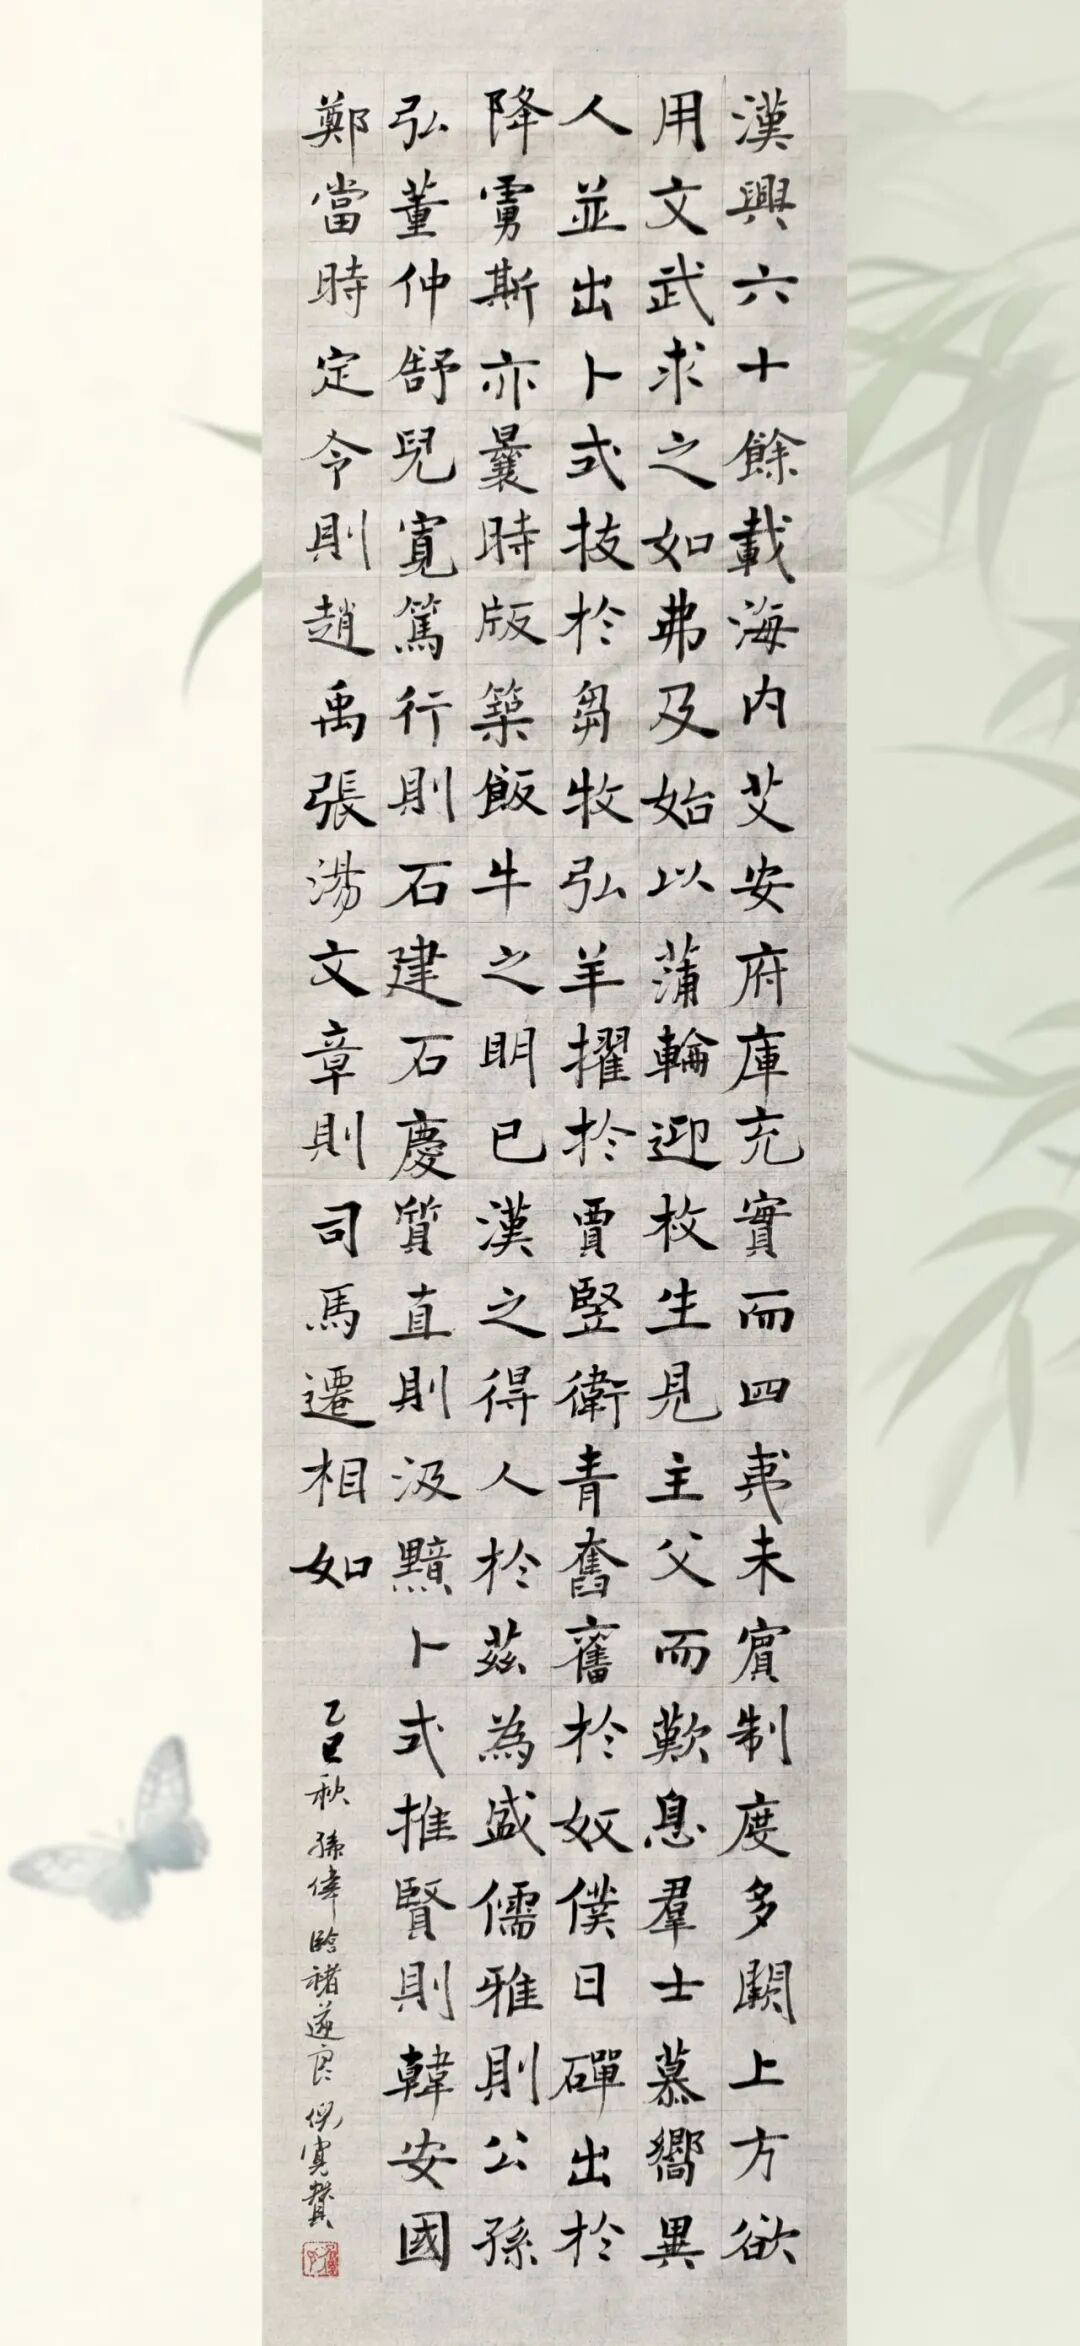 漢興六十餘載海内艾安府庫充實而四夷未賓制度多闕上方欲
用文武求之如弗及始以蒲輪迎枚生見主父而歎息羣士慕嚮異
人並出卜式拔於芻牧弘羊擢於賈豎衛青奮舊於奴僕日磾出於
降虜斯亦曩時版築飯牛之明已漢之得人於茲為盛儒雅則公孫
弘董仲舒兒寬篤行則石建石慶質直則汲黯卜式推賢則韓安國
鄭當時定令則趙禹張湯文章則司馬遷相如
乙巳秋孫偉臨褚遂良倪寬贊